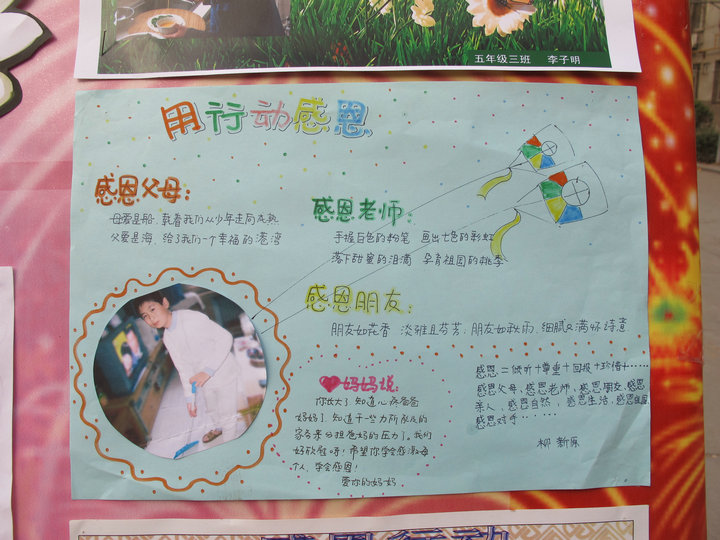 五年级三班 李子明
用行动感恩
感恩父母:
母爱是船,载着我们从少年走向成熟
父爱是海,给了我们一个幸福的港湾
感恩老师:
手握白色的粉笔 画出七色的彩虹
落下甜蜜的泪滴 孕育祖国的桃李
感恩朋友:
朋友如花香 淡雅且芬芳;朋友如秋雨,细腻又满怀诗意
妈妈说:
你长大了 知道心疼爸爸
妈妈了 知道干一些力所能及的
家务来分担爸妈的压力了。我们
好欣慰呀!希望你学会感激每
个人,学会感恩!
爱你的妈妈.
感恩=倾听+尊重+回报+珍惜+……
感恩父母,感恩老师,感恩朋友,感恩
亲人,感恩自然,感恩生活,感恩
感恩对手……
柳新